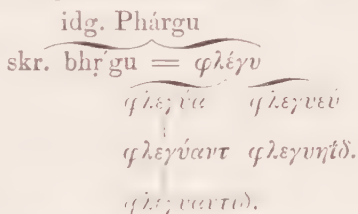 idg. Phárgu
skr. bhṛ́gu = φλέγυ
φλεγύα φλεγυευ
φλεγύαντ φλεγυηΐδ.
φλεγυαντιδ.